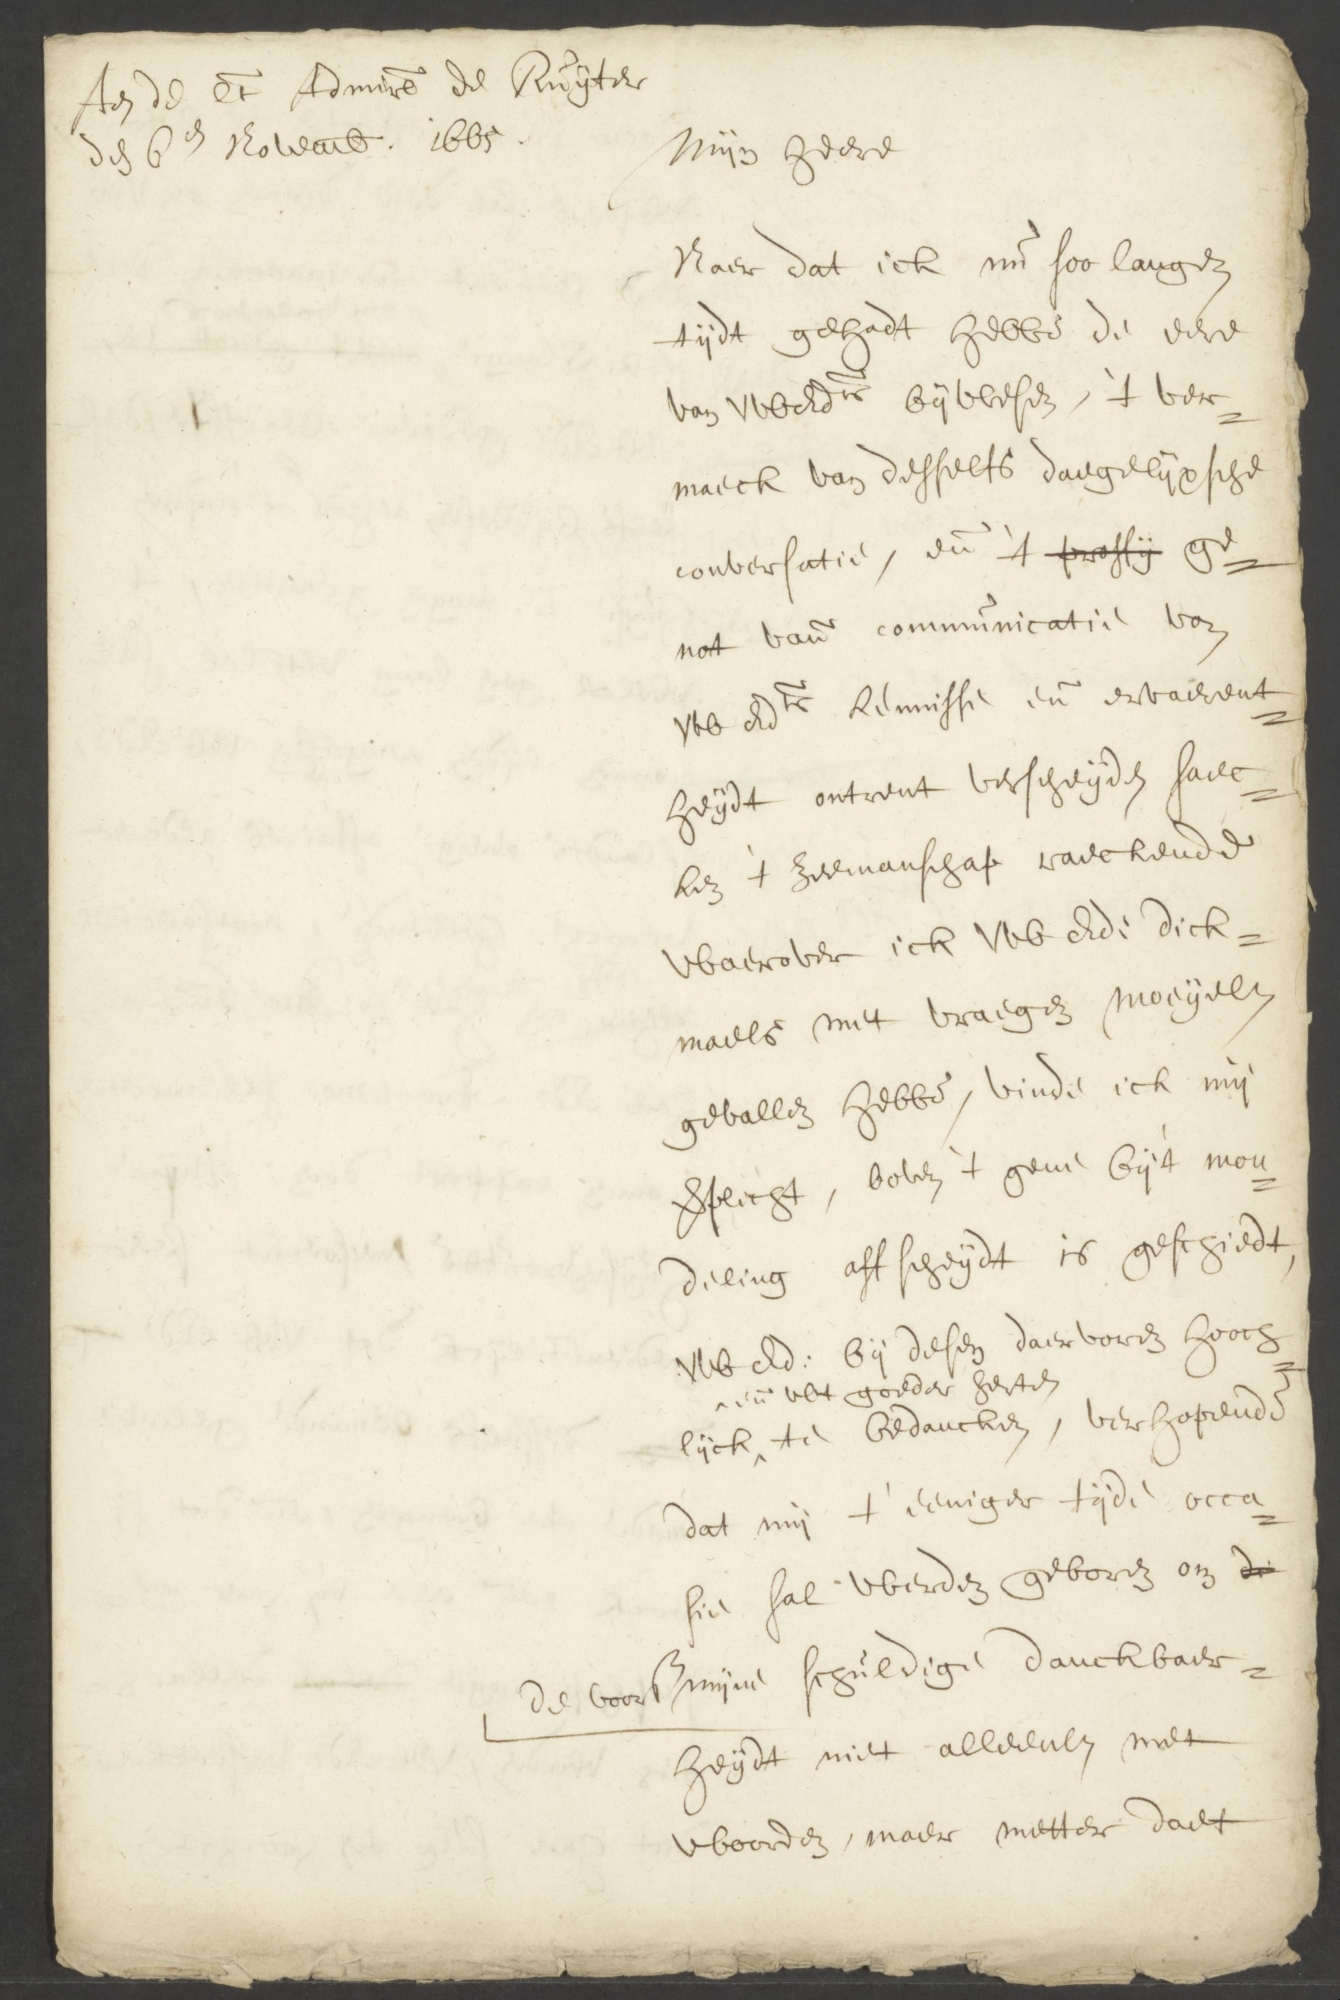 Aen de Lt Admirl de Ruÿter
den 6en Novemb. 1665.
Mijn Heere
Naer dat ick nu soo langen
tijdt gehadt hebbe de eere
van UwEdts bijwesen, 't ver=
maeck van desselfs daegelijxsche
conversatie, en 't prossij ge=
not vande communicatie van
UwEdts kennisse en ervarent=
heÿdt ontrent verscheÿden saec=
ken 't zeemanschap raeckende
waerover ick UwEde dick=
maels met vraegen moeÿelijck
gevallen hebbe, vinde ick mij
verplicht, boven 't gene bij 't mon=
deling affscheÿdt is geschiedt,
UwEd: bij desen daervoren hooch=
en uÿt goeder herten
lijck te bedancken, verhopende
dat mij t' eeniger tijde occa=
sie sal werden geboren om de
de voors. mijne schuldige danckbaer=
heÿdt niet alleenlijck met
woorden, maer metter daet